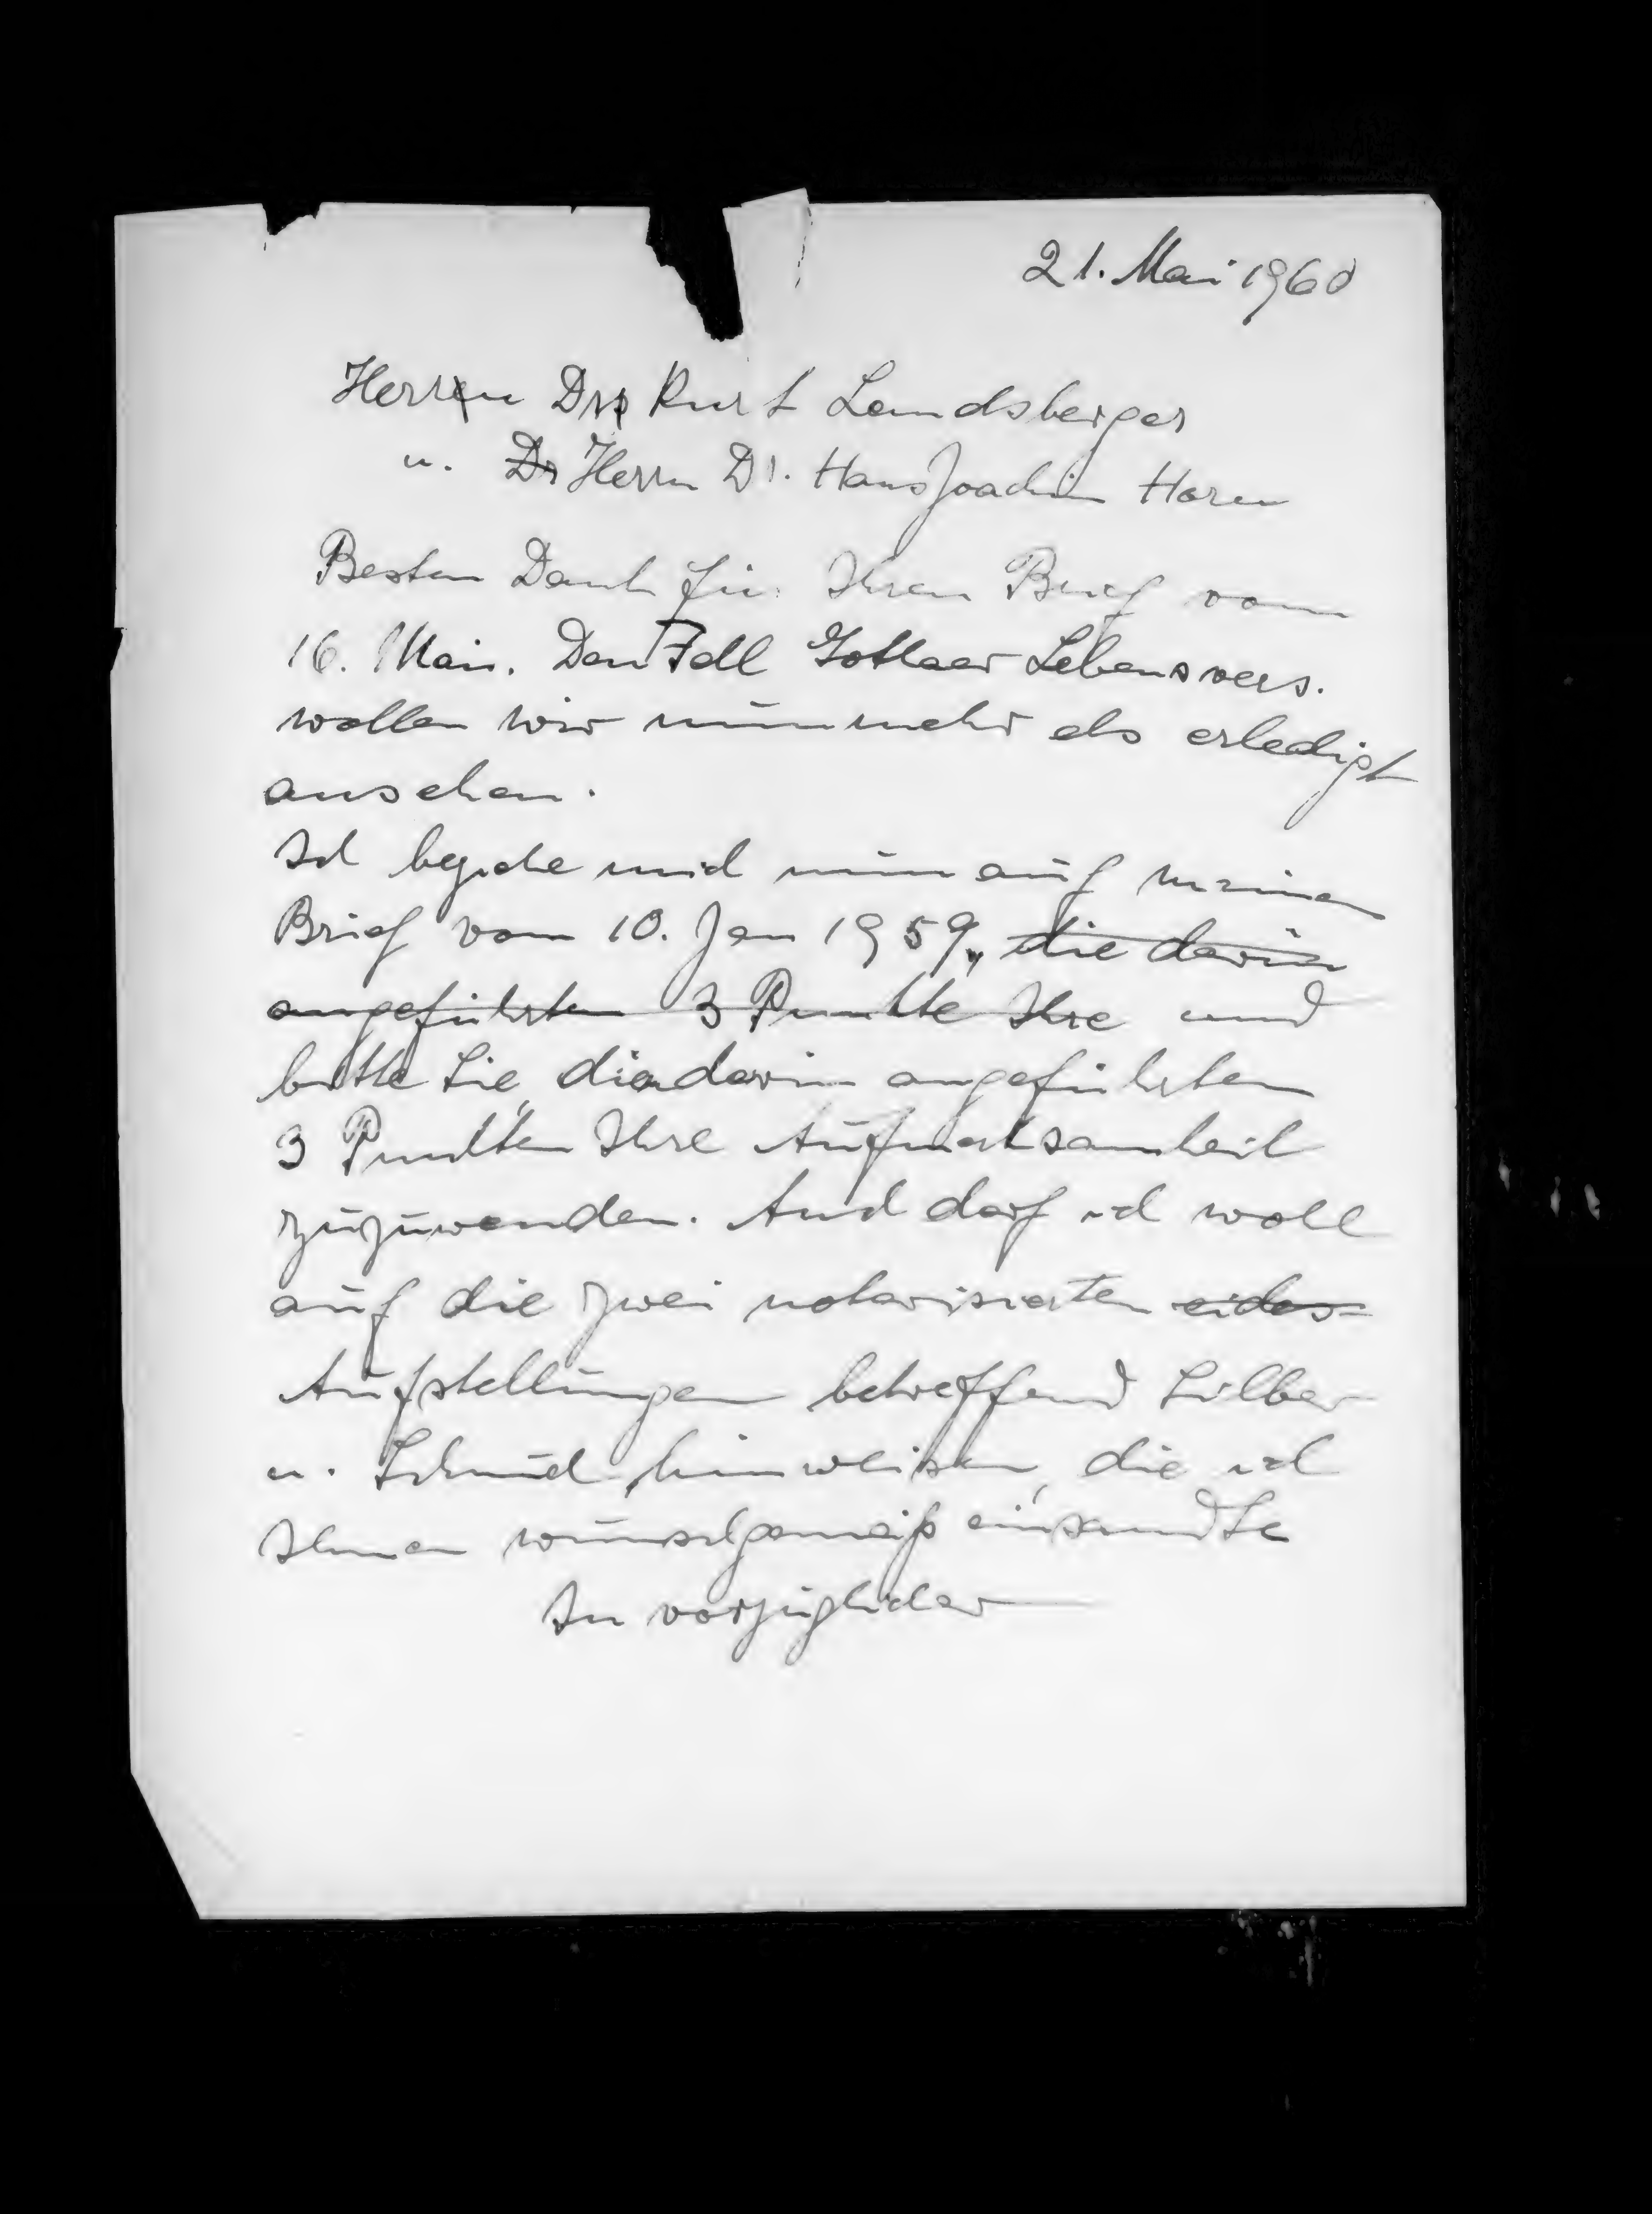 21. Mai 1960
Herrn Dr. Kurt Landsberger
u. Dr Herrn Dr. Hans Joachim Horn
Besten Dank für Ihren Brief vom
16. Mai. Den Fall Gothaer Lebensvers.
wollen wir nunmehr als erledigt
ansehen.
Ich beziehe mich nun auf meinen
Brief vom 10. Jan 1959, die darin
angeführten 3 Punkte Ihre und
bitte Sie, den darin angeführten
3 Punkten Ihre Aufmerksamkeit
zuzuwenden. Auch darf ich wohl
auf die zwei notarisierten eides-
Aufstellungen betreffend Silber
u. Schmuck, hinweisen, die ich
Ihnen wunschgemäß einsandte
In vorzüglicher